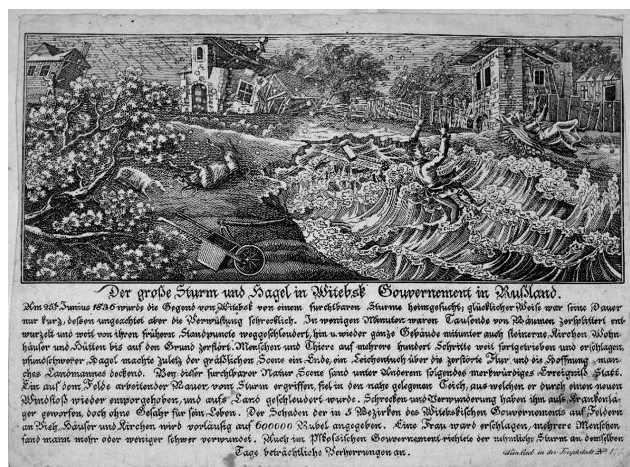 Der große Sturm und Hagel in Witebsk Gouvernement in Rußland.
Am 25t Junius 1836 wurde die Gegend von Witebsk von einem furchtbaren Sturme heimgesucht; glücklicher Weise war seine Dauer
nur kurz, dessen ungeachtet aber die Verwüstung schrecklich. In wenigen Minuten waren Tausende von Bäumen zersplittert ent-
wurzelt und weit von ihren frühern Standpunkte weggeschleudert, hin u wieder ganze Gebäude mitunter auch steinerne Kirchen Wohn-
häuser und Hütten bis auf den Grund zerstört. Menschen und Thiere auf mehrere hundert Schritte weit fortgetrieben und erschlagen
pfundschwerer Hagel machte zuletz der gräßlichen Scene ein Ende, ein Leichentuch über die zerstörte Flur, und die Hoffnung man-
ches Landmannes deckend. Bey dieser furchtbarer Natur Scene fand unter Anderem folgendes merkwürdiges Ereigniß Statt.
Ein auf dem Felde arbeitender Bauer, vom Sturm ergriffen, fiel in den nahe gelegenen Teich, aus welchen er durch einen neuen
Windstoß wieder emporgehoben, und aufs Land geschleudert wurde. Schrecken und Verwunderung haben ihn aufs Krankenla-
ger geworfen, doch ohne Gefahr für sein Leben. Der Schaden der in 5 Bezirken des Witebskischen Gouvernements auf Feldern
an Vieh, Häuser und Kirchen wird vorläufig auf 600000 Rubel angegeben. Eine Frau ward erschlagen, mehrere Menschen
fand mann mehr oder weniger schwer verwundet. Auch im Gouvernement richtete der nehmliche Sturm an demselben
Tage beträchtliche Verherrungen an.
in der